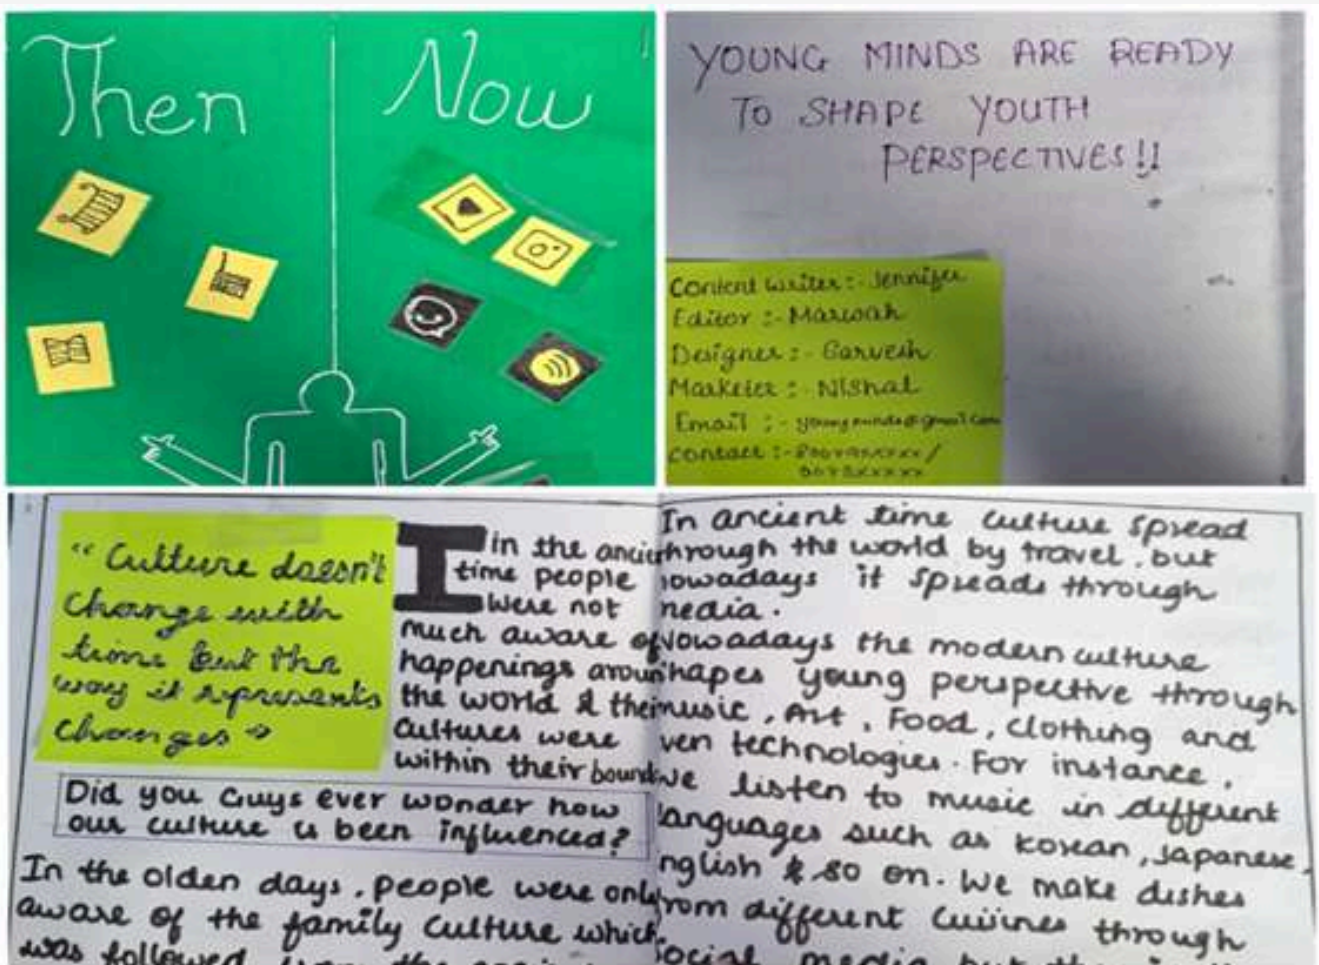 Then
Now
YOUNG MINDS ARE READY
TO SHAPE YOUTH
PERSPECTIVES!!
Content writer:- Jennifer
Editor :- Marwah
Designer :- Sarvesh
Marketer :- Nishal
Email :- youngminds@gmail.com
contact :-
"Culture doesn't
change with
time but the
way it represents
changes"
In the ancient
time people
were not
much aware of
happenings aroun
the world & their
cultures were
within their bound
Did you Guys ever wonder how
our culture is been influenced?
In the olden days, people were only
aware of the family culture which
was followed from the
In ancient time culture spread
through the world by travel, but
nowadays it spreads through
media.
Nowadays the modern culture
shapes young perspective through
music, Art, Food, clothing and
ven technologies. For instance,
we listen to music in different
languages such as korean, Japanese,
nglish & so on. We make dishes
from different cuisines through
social media but